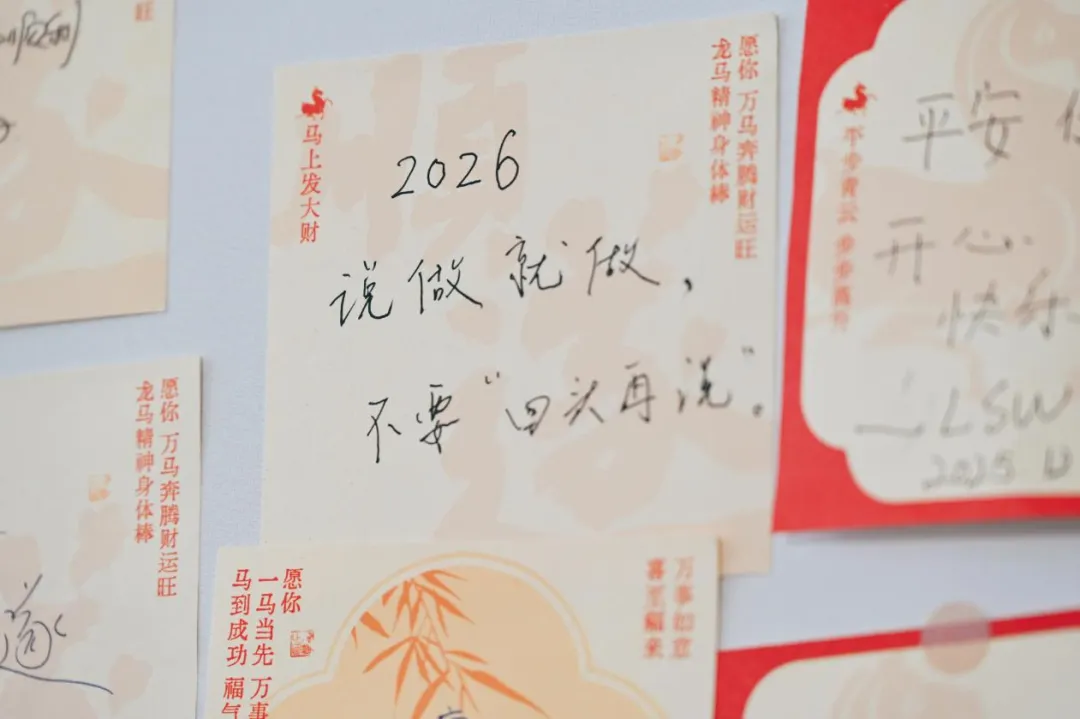 旺
愿你 万马奔腾财运旺
龙马精神身体棒
马上发大财
2026
说做就做，
不要“回头再说”。
平安
开心
快乐
LSW
2025
平步青云 步步高升
愿你 万马奔腾财运旺
龙马精神身体棒
愿你
一马当先 万事
马到成功 福气
万事如意
喜至福来